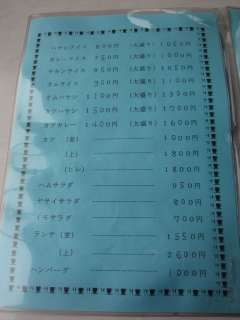 ハヤシライス 850円 (大盛り) 1050円
カレーライス 750円 (大盛り) 950円
チキンライス 850円 (大盛り) 1050円
オムライス 950円 (大盛り) 1100円
オムハヤシ 1100円 (大盛り) 1300円
カツハヤシ 1500円 (大盛り) 1700円
カツカレー 1400円 (大盛り) 1600円
カツ (並) 1500円
(上) 1800円
(ヒレ) 1800円
ハムサラダ 950円
ヤサイサラダ 800円
ミモサラダ 700円
ランチ (並) 1550円
(上) 2600円
ハンバーグ 1000円